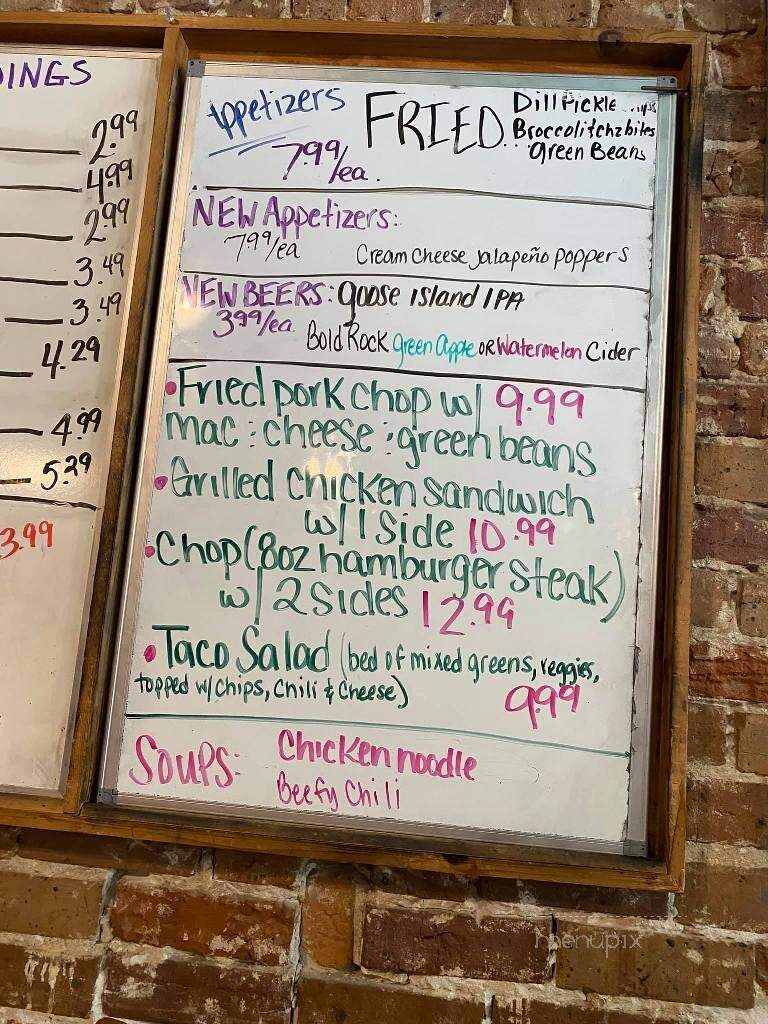 DINGS
2.99
4.99
2.99
3.49
3.49
4.29
4.99
5.29
3.99
Appetizers
7.99/ea.
FRIED
Dill Pickle
Broccolitchzbites
Green Beans
NEW Appetizers:
7.99/ea
Cream Cheese Jalapeño Poppers
NEW BEERS: Goose Island IPA
3.99/ea.
Bold Rock Green Apple OR Watermelon Cider
• Fried pork chop w/ 9.99
mac : cheese : green beans
• Grilled chicken sandwich
w/ 1 side 10.99
• Chop (8oz hamburger steak)
w/ 2 sides 12.99
• Taco Salad (bed of mixed greens, veggies,
topped w/ chips, chili & cheese)
9.99
Soups: Chicken noodle
Beefy Chili
menupix